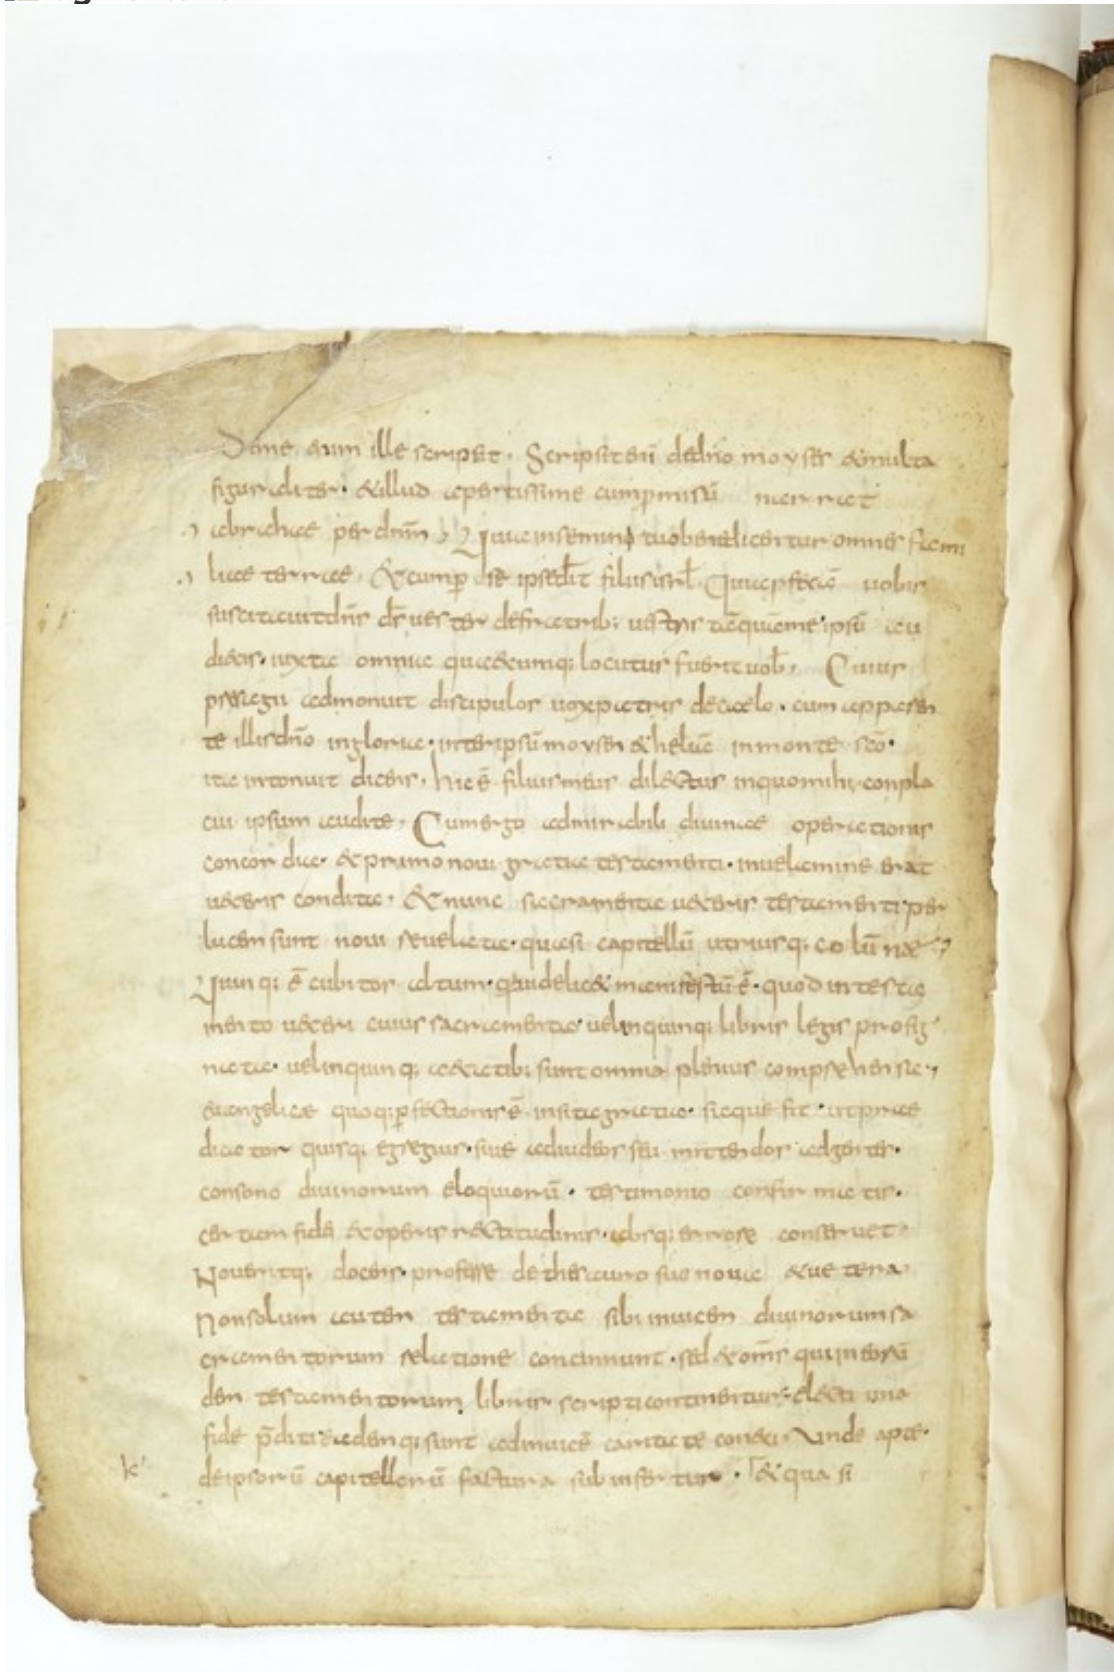 De me enim ille scripsit. Scripsit eni de dno moyses & multa
figuraliter. & illud apertissime cum pmissu narrat
abrahae per dnm, Quia in semine tuo benedicentur omnes fami
liae terrae. & cum p se ipse dixit filiis isrl. Quia pfetã uobis
suscitauit dns ds uester de fratrib; uestris tãquã me. ipsũ au
dietis. iuxta omnia quaecumq; locutus fuerit uob. Cuius
praesagii admonuit discipulos uox patris de caelo. cum apparen
te illis dño in gloria. inter ipsũ moysen & heliã in monte scõ.
ita intonuit dicens. hic ẽ filius meus dilectus in quo mihi conpla
cui ipsum audite. Cum ergo admirabili diuinae operationis
concordia. & primo noui gratia testamenti. in uelamine erat
ueteris condita. & nunc sacramenta ueteris testamenti per
lucem sunt noui reuelata. quasi capitellũ utriusq; colũnae,
Quinq; ẽ cubitos altum. quia uidelic& manifestũ ẽ. quod in testa
mento ueteri cuius sacramenta uel in quinq; libris legis prosig
nata. uel in quinq; aetatib; sunt omnia plenius comprehensa.,
euangelicae quoq; pfectionis ẽ insita gratia. sicque fit. ut prae
dicator quisq; egregius. siue ad iudeos seu mittendos ad gentes.
consono diuinorum eloquiorũ. testimonio confirmatis.
certam fidei & operis rectitudinis. absq; errore conseruet.
Noueritq; docens. proferre de thesauro suo noua & uetera
Non solum autem testamenta sibi inuicem diuinorum sa
cramentorum relatione concinnunt. sed & oms qui in eorũ
dem testamentorum libris scripti continentur. electi una
fide pditi & eadem q; sunt ad inuicẽ caritate conexi. Unde apte.
de ipsorũ capitellorũ factura subinfertur. & quasi
k'